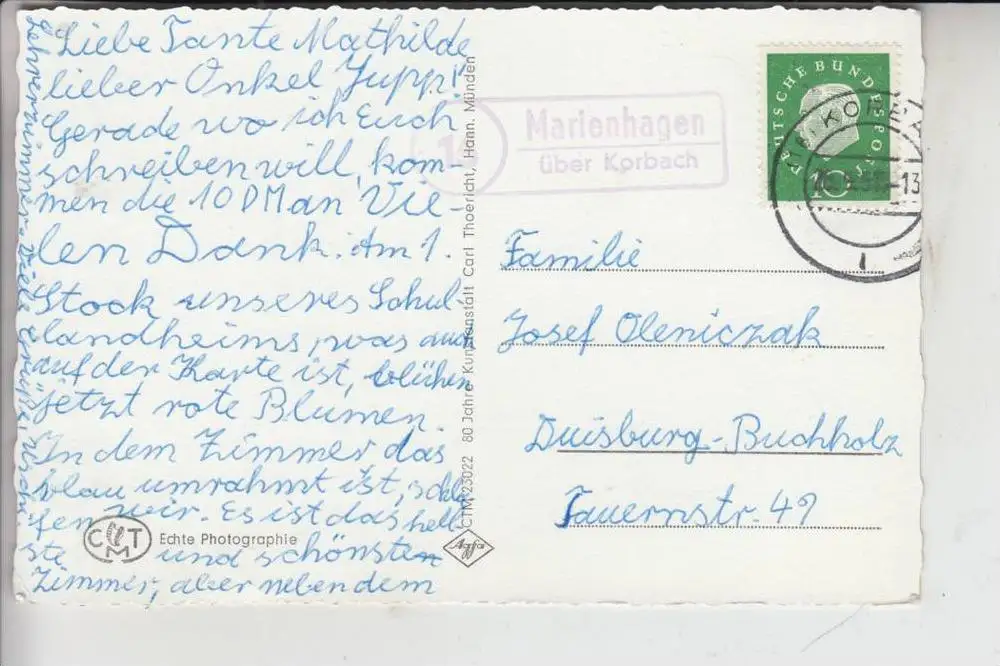 Liebe Tante Mathilde
lieber Onkel Jupp!
Gerade wo ich Euch
schreiben will, kom-
men die 10 DM an Vie-
len Dank. Am 1.
Stock unseres Schul-
landheims, was auch
auf der Karte ist, blühen
jetzt rote Blumen.
In dem Zimmer das
blau umrahmt ist, schla
fen wir. Es ist das hell-
ste und schönste
Zimmer, aber neben dem
Lehrerzimmer. Viele Grüße
CTM 23022 80 Jahre Kunstanstalt Carl Thoericht, Hann. Münden
C M T
Echte Photographie
Agfa
16
Marienhagen
über Korbach
DEUTSCHE BUNDESPOST
10
KORBA
-13
1
Familie
Josef Oleniczak
Duisburg-Buchholz
Tauernstr. 49